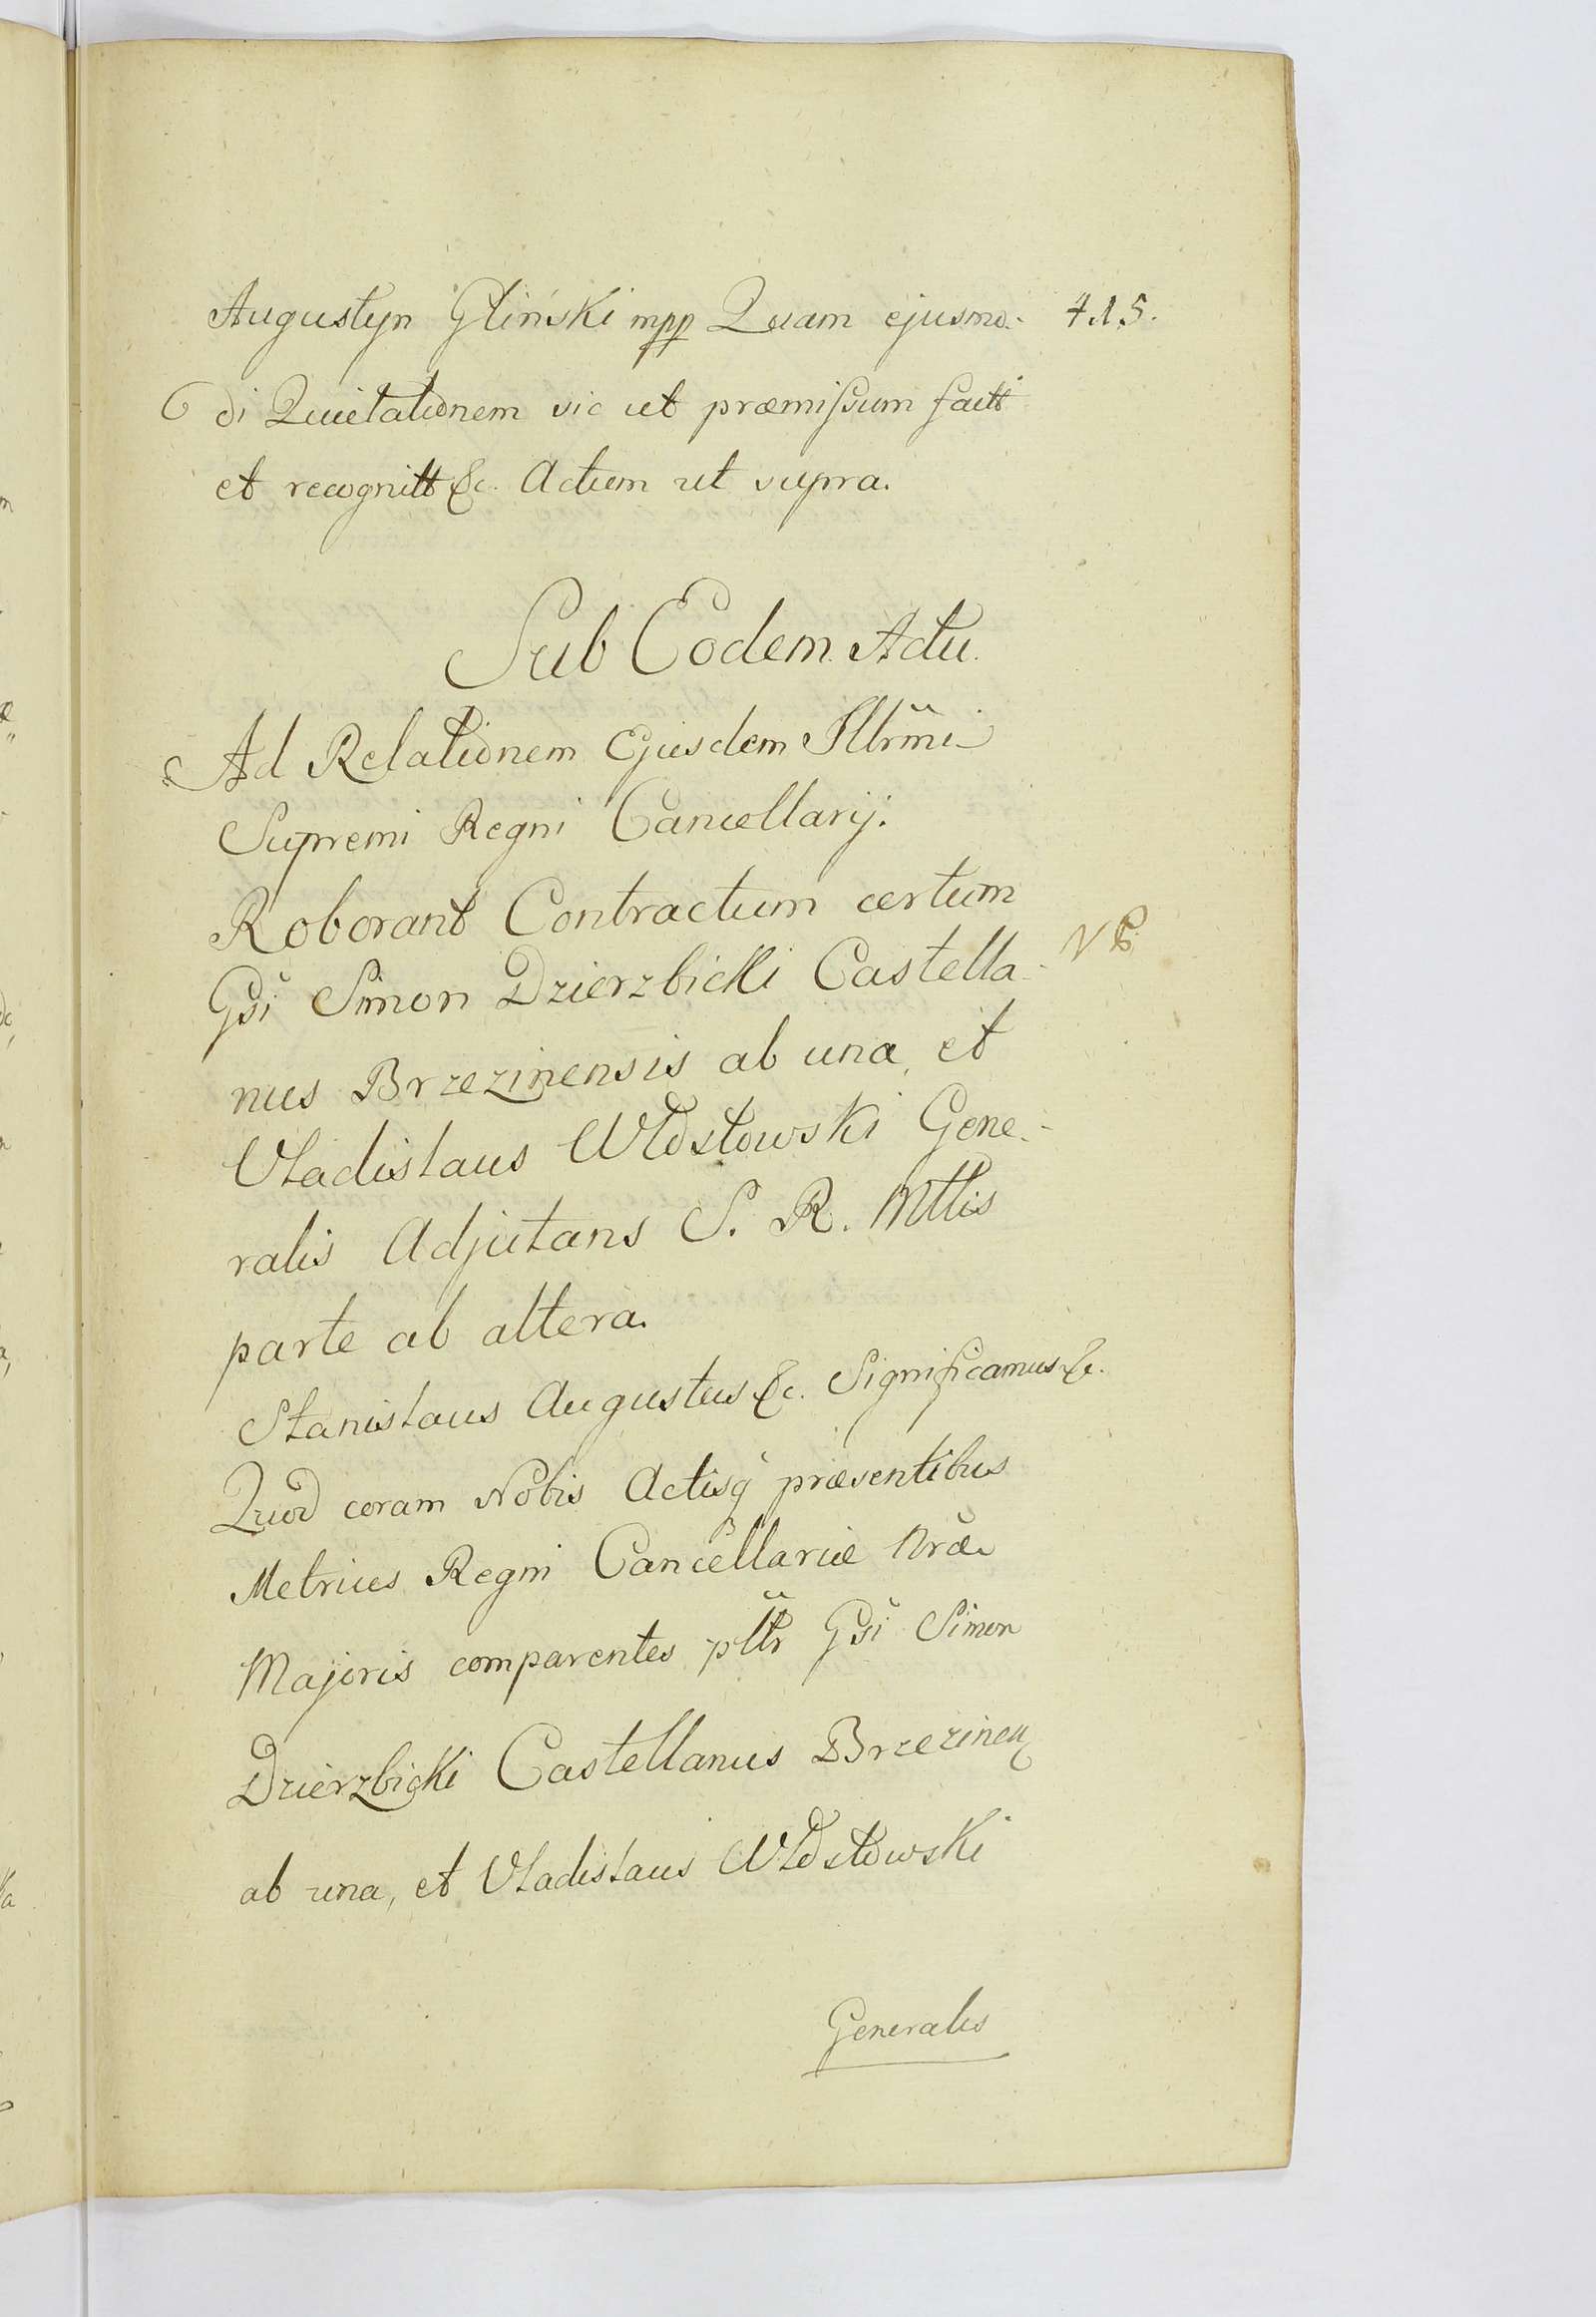 Augustyn Gliński mpp Quam ejusmo- 415.
di Quietationem sic ut præmissum factt
et recognitt &c. Actum ut supra.
Sub Eodem Actu.
Ad Relationem Ejusdem Illrmi
Supremi Regni Cancellarij.
Roborant Contractum certum
Gsi Simon Dzierzbicki Castella- NB
nus Brzezinensis ab una, et
Vladislaus Włostowski Gene-
ralis Adjutans S. R. Mttis
parte ab altera.
Stanislaus Augustus &c. Significamus &c.
Quod coram Nobis Actisq præsentibus
Metrices Regni Cancellariæ Nræ
Majoris comparentes pltr Gsi Simon
Dzierzbicki Castellanus Brzezinen
ab una, et Vladislaus Włostowski
Generalis